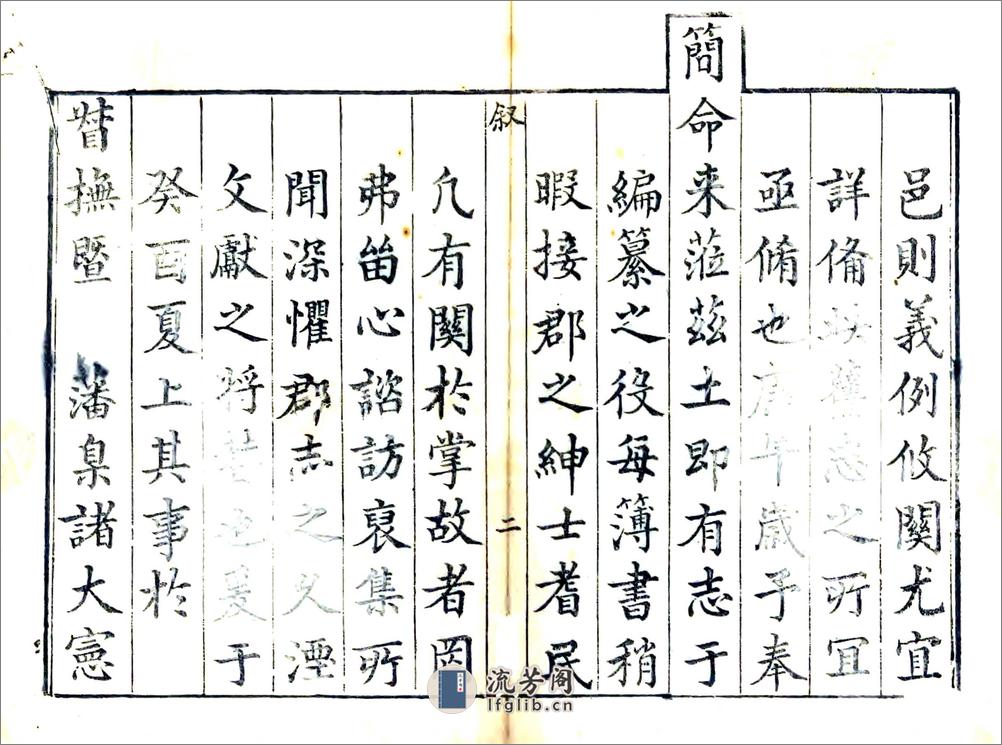 邑則義例攸關尤宜
詳俻於舊志之所宜
亟脩也庚午歲予奉
簡命来蒞茲土即有志于
編纂之役每簿書稍
暇接郡之紳士耆民
叙
二
凢有關於掌故者罔
弗留心諮訪裒集所
聞深懼郡志之久湮
文獻之将墜也爰于
癸酉夏上其事於
督撫暨 藩臬諸大憲
流芳阁
lfglib.cn